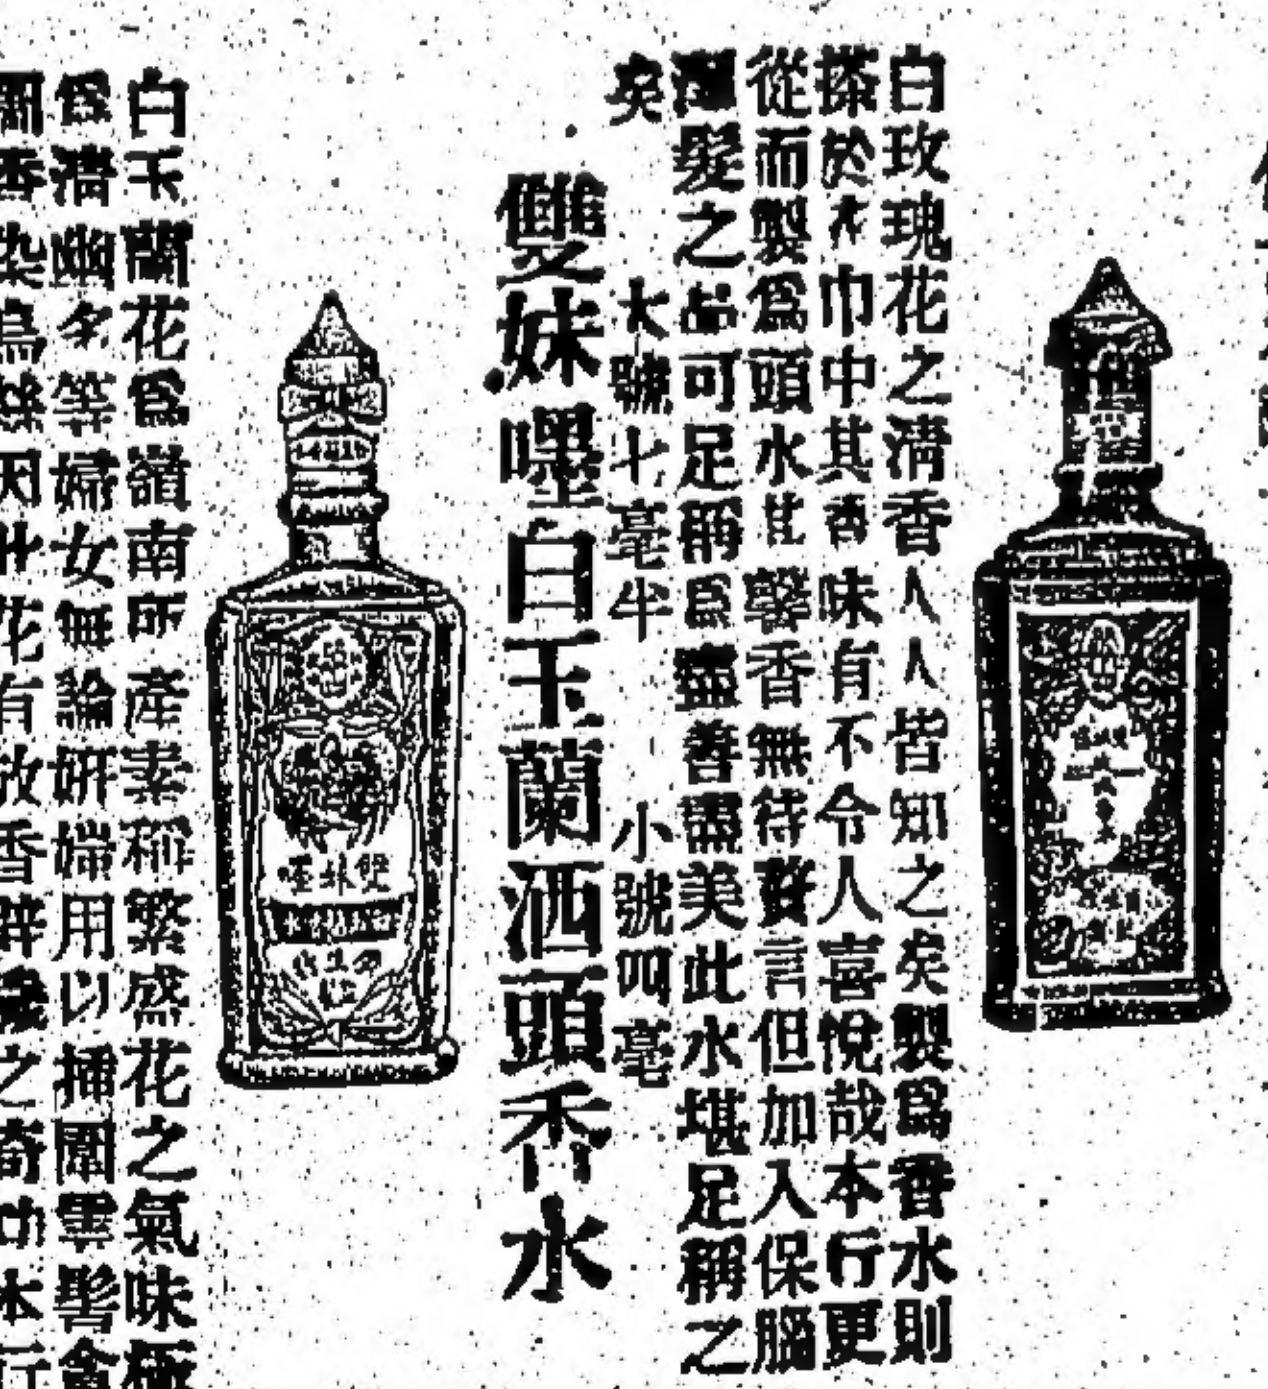 白玫瑰花之清香人人皆知之矣製為香水則
搽於衣巾中其香味有不令人喜悅哉本行更
從而製為頭水其馨香無待贅言但加入保腦
潤髮之品可足稱為盡善盡美此水堪足稱之
矣
大號七毫半 小號四毫
雙妹嘜白玉蘭洒頭香水
白玉蘭花為嶺南所產素稱繁盛花之氣味極
為清幽多等婦女無論妍媸用以插圍雲髻
香染烏絲因此花有放香辟之奇功本行